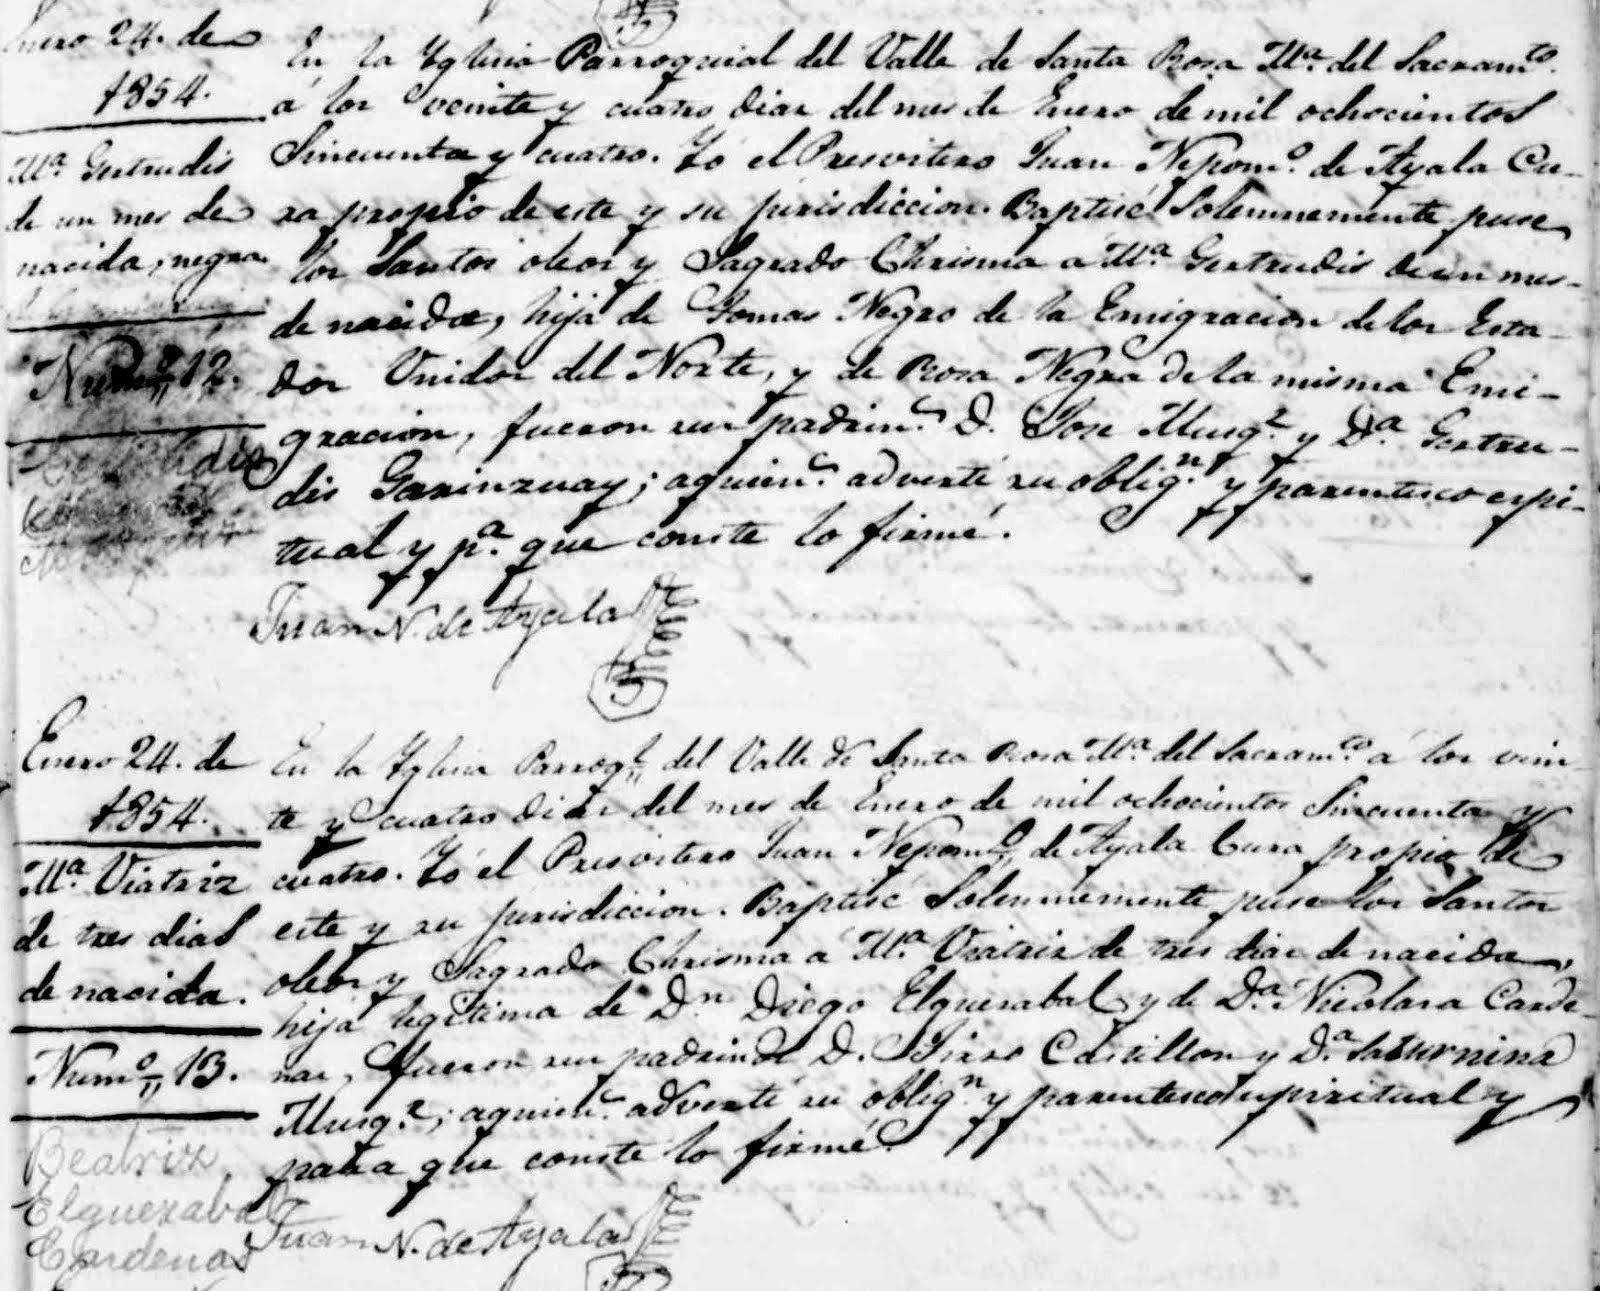 Enero 24. de
1854.
Mª. Gertrudis
de un mes de
nacida, negra
Numº 12.
En la Yglecia Parroquial del Valle de Santa Rosa Mª. del Sacramto.
á los veinte y cuatro dias del mes de Enero de mil ochocientos
Sincuenta y cuatro. Yó el Presvitero Juan Nepomº. de Ayala Cu-
ra propio de este y su jurisdiccion. Baptisé Solemnemente puse
los Santos oleos y Sagrado Chrisma a Mª. Gertrudis de un mes-
de nacida, hija de Tomas Negro de la Emigracion de los Esta-
dos Unidos del Norte, y de Rosa Negra de la misma Emi-
gracion, fueron sus padrins. D. Jose Musqz. y Dª. Gertru-
dis Garinzuay; aquiens. adverti su oblign. y parentesco espi-
tual y pª. que conste lo firmé.
Juan N. de Ayala
Enero 24. de
1854.
Mª. Viatriz
de tres dias
de nacida.
Numº 13.
Beatriz
Elguezabal
Cardenas
En la Yglecia Parroql. del Valle de Santa Rosa Mª. del Sacramto. á los vein-
te y cuatro dias del mes de Enero de mil ochocientos Sincuenta y
cuatro. Yó el Presvitero Juan Nepomº. de Ayala Cura propio de
este y su jurisdiccion. Baptisé Solemnemente puse los Santos
oleos y Sagrado Chrisma á Mª. Viatriz de tres dias de nacida,
hija legitima de Dn. Diego Elguesabal y de Dª. Nicolasa Carde-
nas, fueron sus padrins. D. Tirso Castillon y Dª. Saturnina
Musqz.; aquiens. adverti su oblign. y parentesco espiritual y
para que conste lo firmé.
Juan N. de Ayala